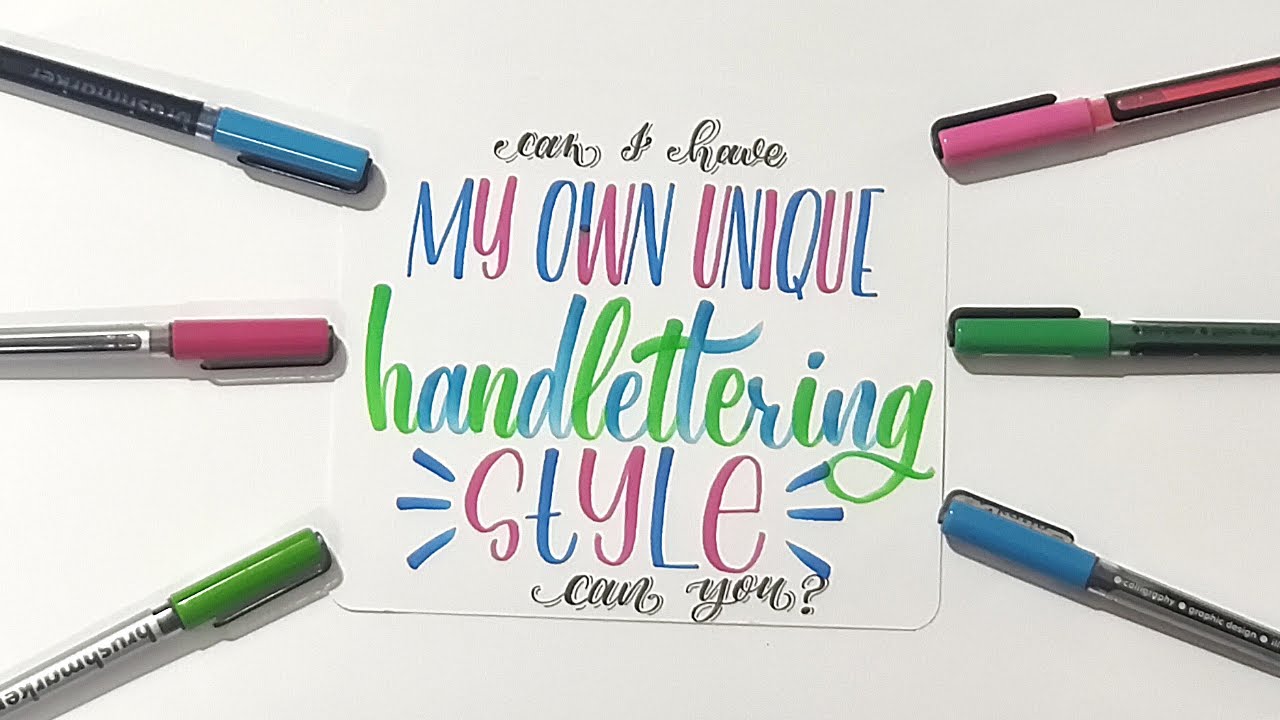 can I have
MY OWN UNIQUE
handlettering
STYLE
can you?
brushmarker
brushmarker
calligraphy • graphic design